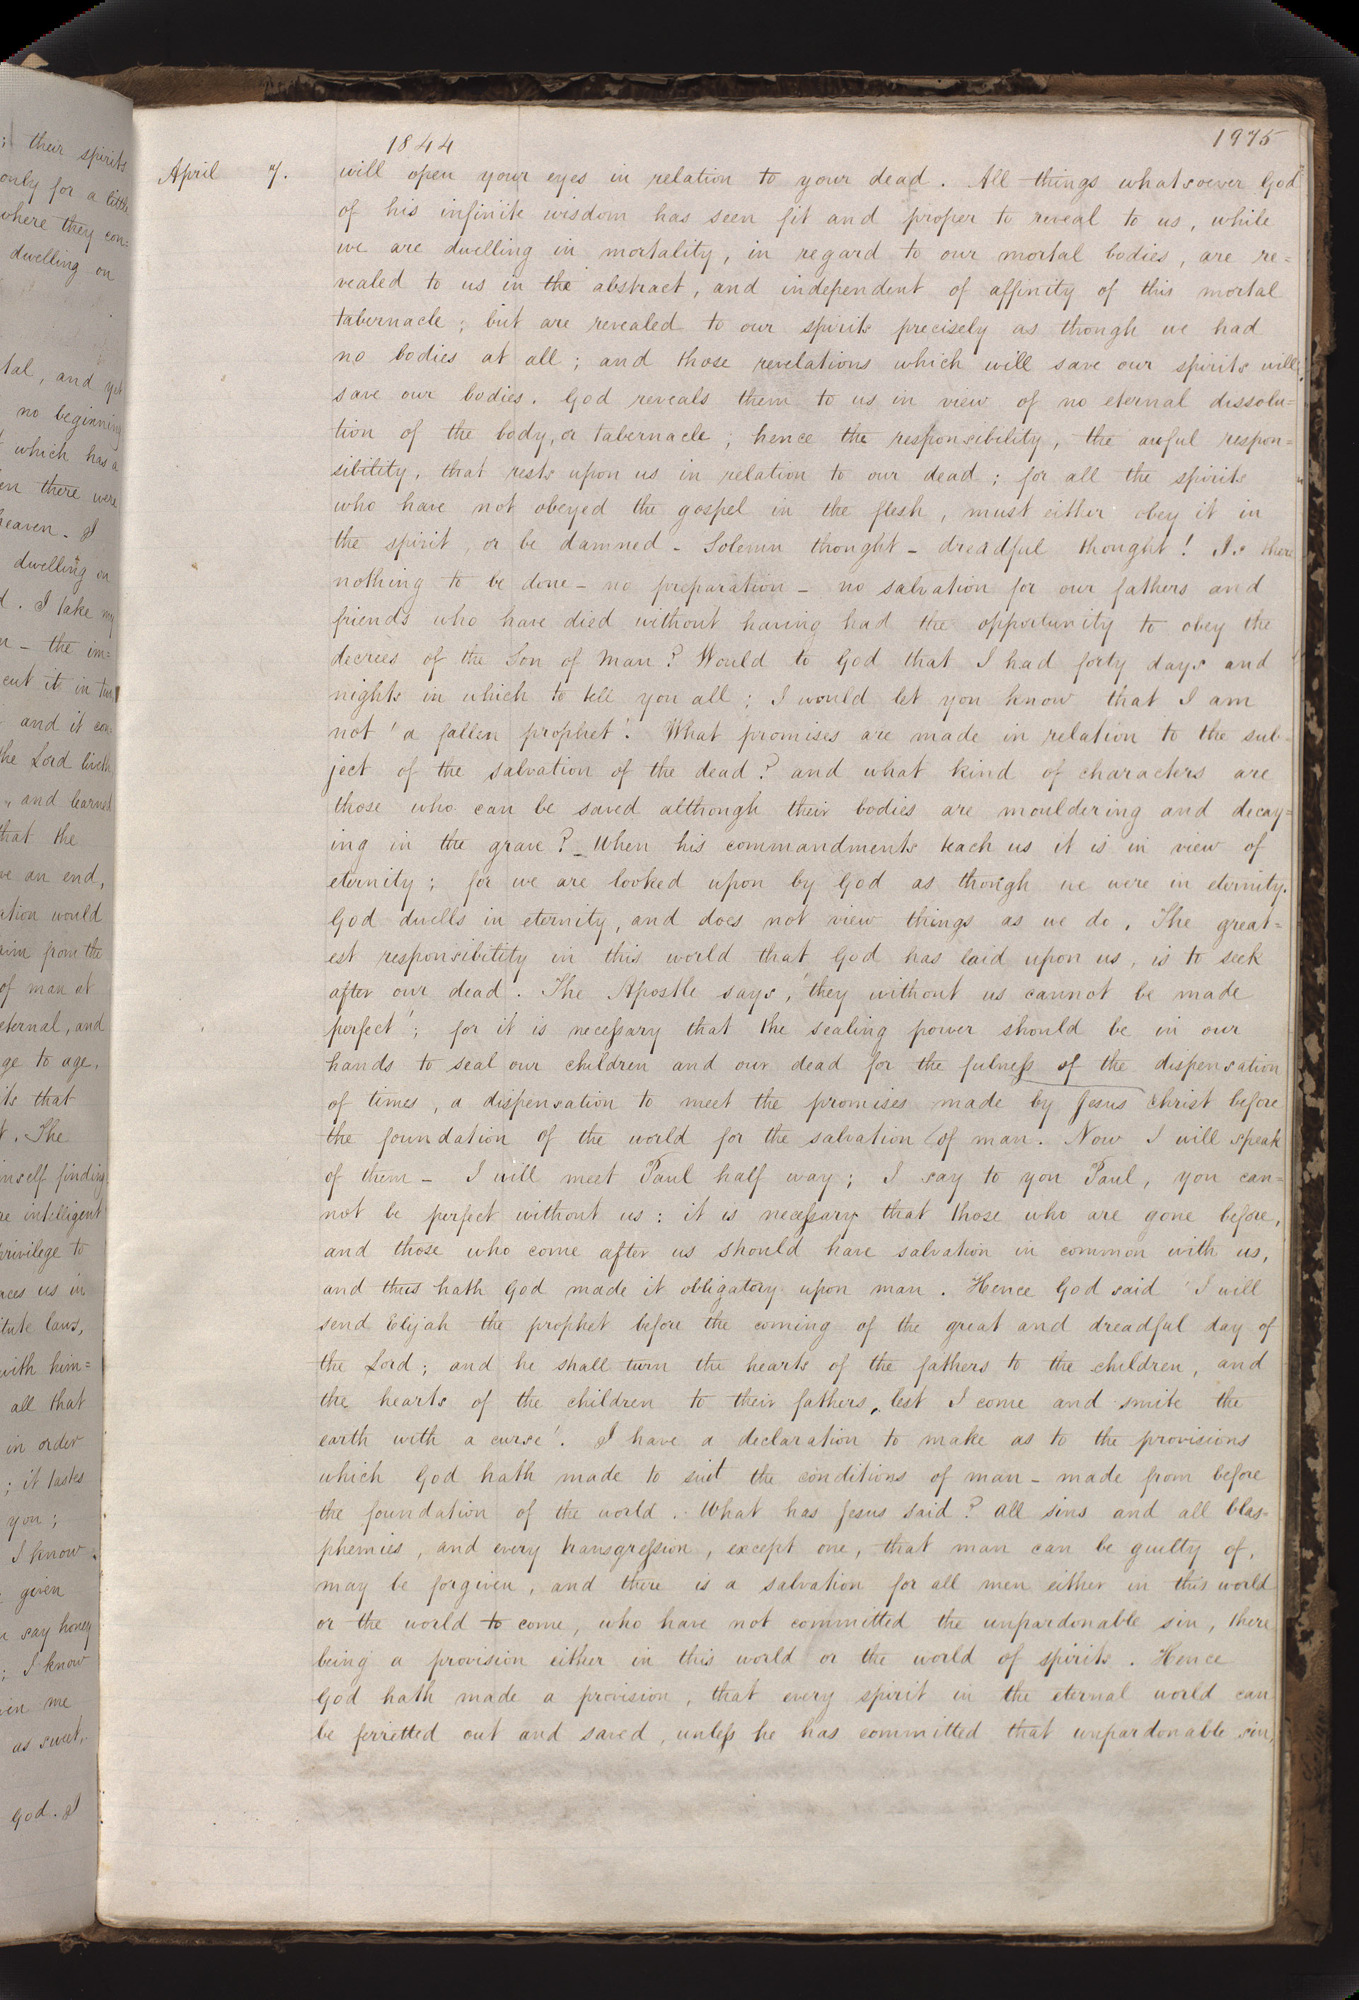 ; their spirits
only for a little
where they con=
dwelling on
tal, and yet
no beginning
which has a
en there were
heaven. I
dwelling on
d. I take my
er – the im=
cut it in two
and it con=
the Lord liveth
and learned
that the
ve an end,
ation would
aim from the
of man at
eternal, and
ge to age,
its that
t. The
imself finding
re intelligent
privilege to
aces us in
itute laws,
with him=
all that
in order
; it tastes
you;
I know
given
n say honey
; I know
en me
as sweet,
God. I
1844
1975
April 7. will open your eyes in relation to your dead. All things whatsoever God
of his infinite wisdom has seen fit and proper to reveal to us, while
we are dwelling in mortality, in regard to our mortal bodies, are re=
vealed to us in the abstract, and independent of affinity of this mortal
tabernacle; but are revealed to our spirits precisely as though we had
no bodies at all; and those revelations which will save our spirits will
save our bodies. God reveals them to us in view of no eternal dissolu=
tion of the body, or tabernacle; hence the responsibility, the awful respon=
sibility, that rests upon us in relation to our dead; for all the spirits
who have not obeyed the gospel in the flesh, must either obey it in
the spirit, or be damned – Solemn thought – dreadful thought! Is there
nothing to be done – no preparation – no salvation for our fathers and
friends who have died without having had the opportunity to obey the
decrees of the Son of Man? Would to God that I had forty days and
nights in which to tell you all; I would let you know that I am
not 'a fallen prophet'. What promises are made in relation to the sub=
ject of the salvation of the dead? and what kind of characters are
those who can be saved although their bodies are mouldering and decay=
ing in the grave? – When his commandments teach us it is in view of
eternity; for we are looked upon by God as though we were in eternity.
God dwells in eternity, and does not view things as we do. The great=
est responsibility in this world that God has laid upon us, is to seek
after our dead. The Apostle says, 'they without us cannot be made
perfect'; for it is necessary that the sealing power should be in our
hands to seal our children and our dead for the fulness of the dispensation
of times, a dispensation to meet the promises made by Jesus Christ before
the foundation of the world for the salvation of man. Now I will speak
of them – I will meet Paul half way; I say to you Paul, you can=
not be perfect without us: it is necessary that those who are gone before,
and those who come after us should have salvation in common with us,
and thus hath God made it obligatory upon man. Hence God said 'I will
send Elijah the prophet before the coming of the great and dreadful day of
the Lord; and he shall turn the hearts of the fathers to the children, and
the hearts of the children to their fathers, lest I come and smite the
earth with a curse'. I have a declaration to make as to the provisions
which God hath made to suit the conditions of man – made from before
the foundation of the world. What has Jesus said? All sins and all blas=
phemies, and every transgression, except one, that man can be guilty of,
may be forgiven, and there is a salvation for all men either in this world
or the world to come, who have not committed the unpardonable sin, there
being a provision either in this world or the world of spirits. Hence
God hath made a provision, that every spirit in the eternal world can
be ferretted out and saved, unless he has committed that unpardonable sin,